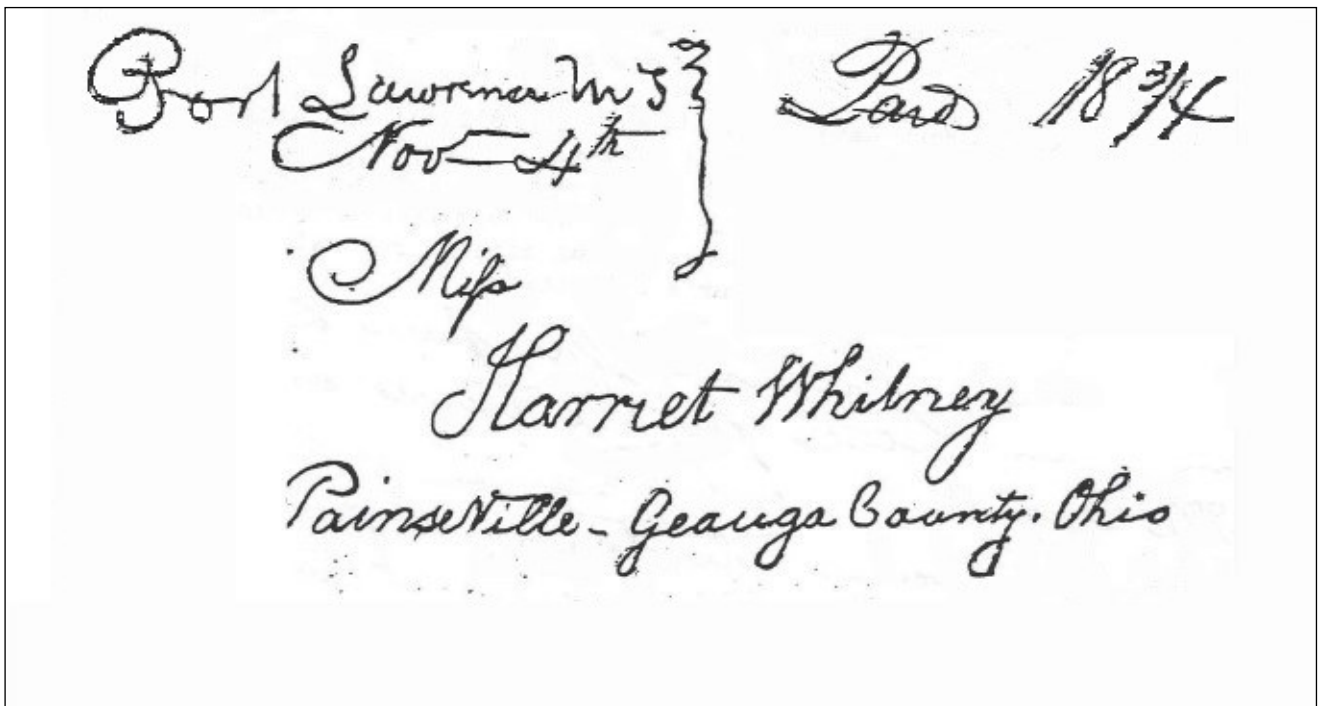 Port Lawrence M T } Paid 18 3/4
Nov 4th
Miss
Harriet Whitney
PainseVille - Geauga County. Ohio